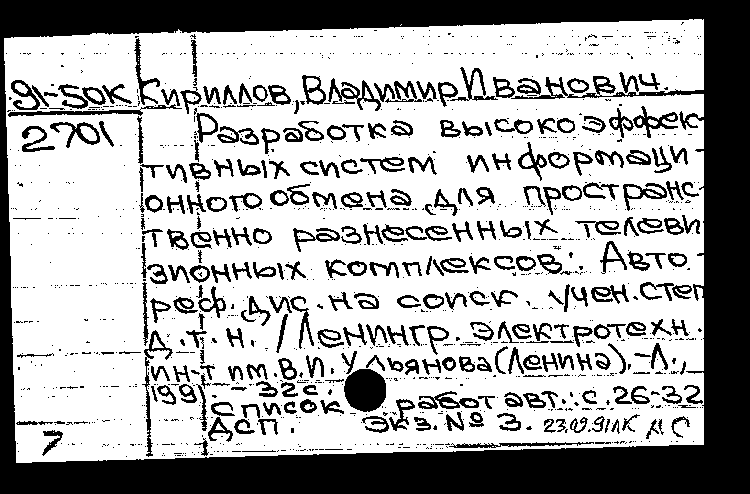 91-50К Кириллов, Владимир Иванович
2701 Разработка высокоэффек-
тивных систем информаци-
онного обмена для пространс-
твенно разнесенных телеви
зионных комплексов: Авто-
реф. дис. на соиск. учен. степ
д.т.н. /Ленингр. электротехн.
ин-т им. В.И. Ульянова (Ленина).-Л.,
1991.- 32с.
Список работ авт.: с. 26-32
ДСП. Экз. № 3. 23.09.91
7